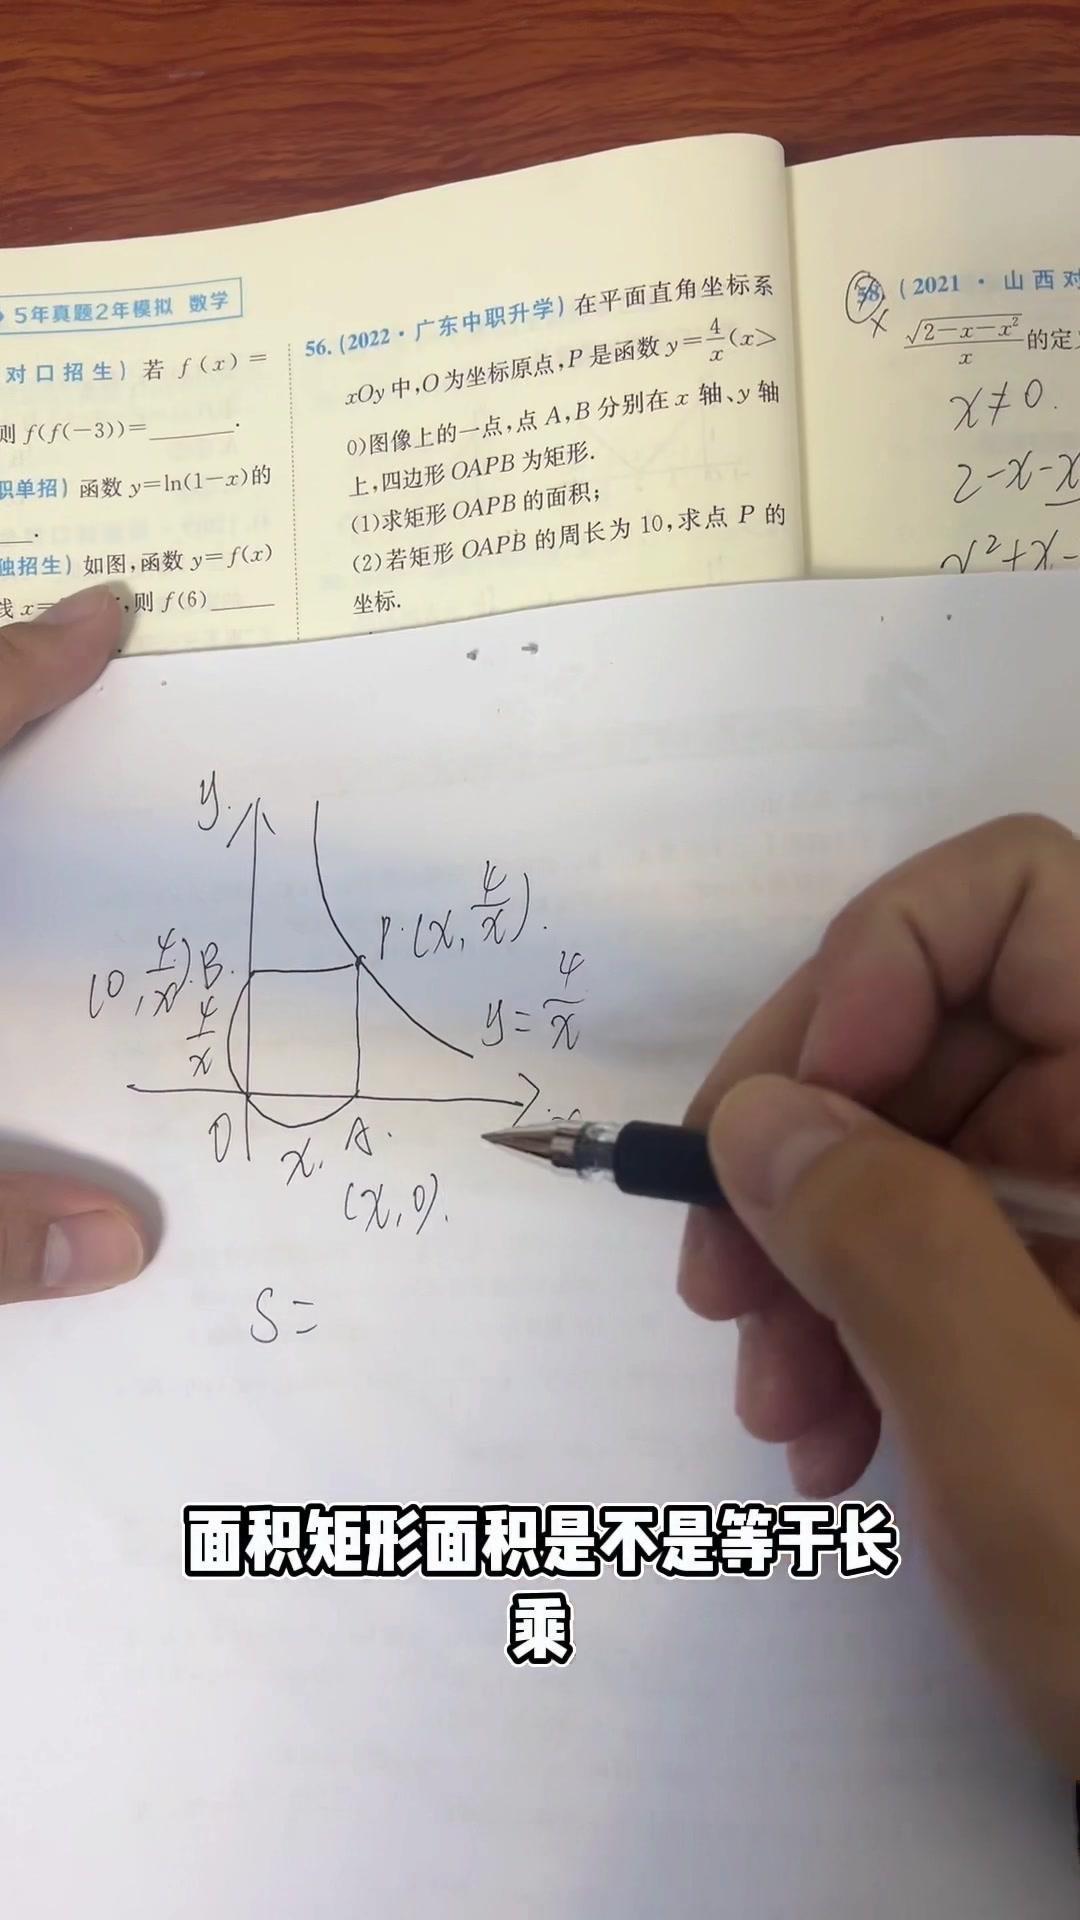 5年真题2年模拟 数学
对口招生) 若 f(x)=
则 f(f(-3))=______.
职单招) 函数 y=ln(1-x)的
独招生) 如图,函数 y=f(x)
线 x=
,则 f(6)____
56.(2022·广东中职升学) 在平面直角坐标系
xOy 中,O 为坐标原点,P 是函数 y=4/x(x>
0)图像上的一点,点 A,B 分别在 x 轴、y 轴
上,四边形 OAPB 为矩形.
(1)求矩形 OAPB 的面积;
(2)若矩形 OAPB 的周长为 10,求点 P 的
坐标.
58.(2021·山西对
√(2-x-x²)/x 的定
x≠0.
2-x-x
x²+x-
y
P.(x, 4/x).
(0, 4/x) B.
4/x
y=4/x
O
x.
A.
(x,0).
S=
面积矩形面积是不是等于长
乘